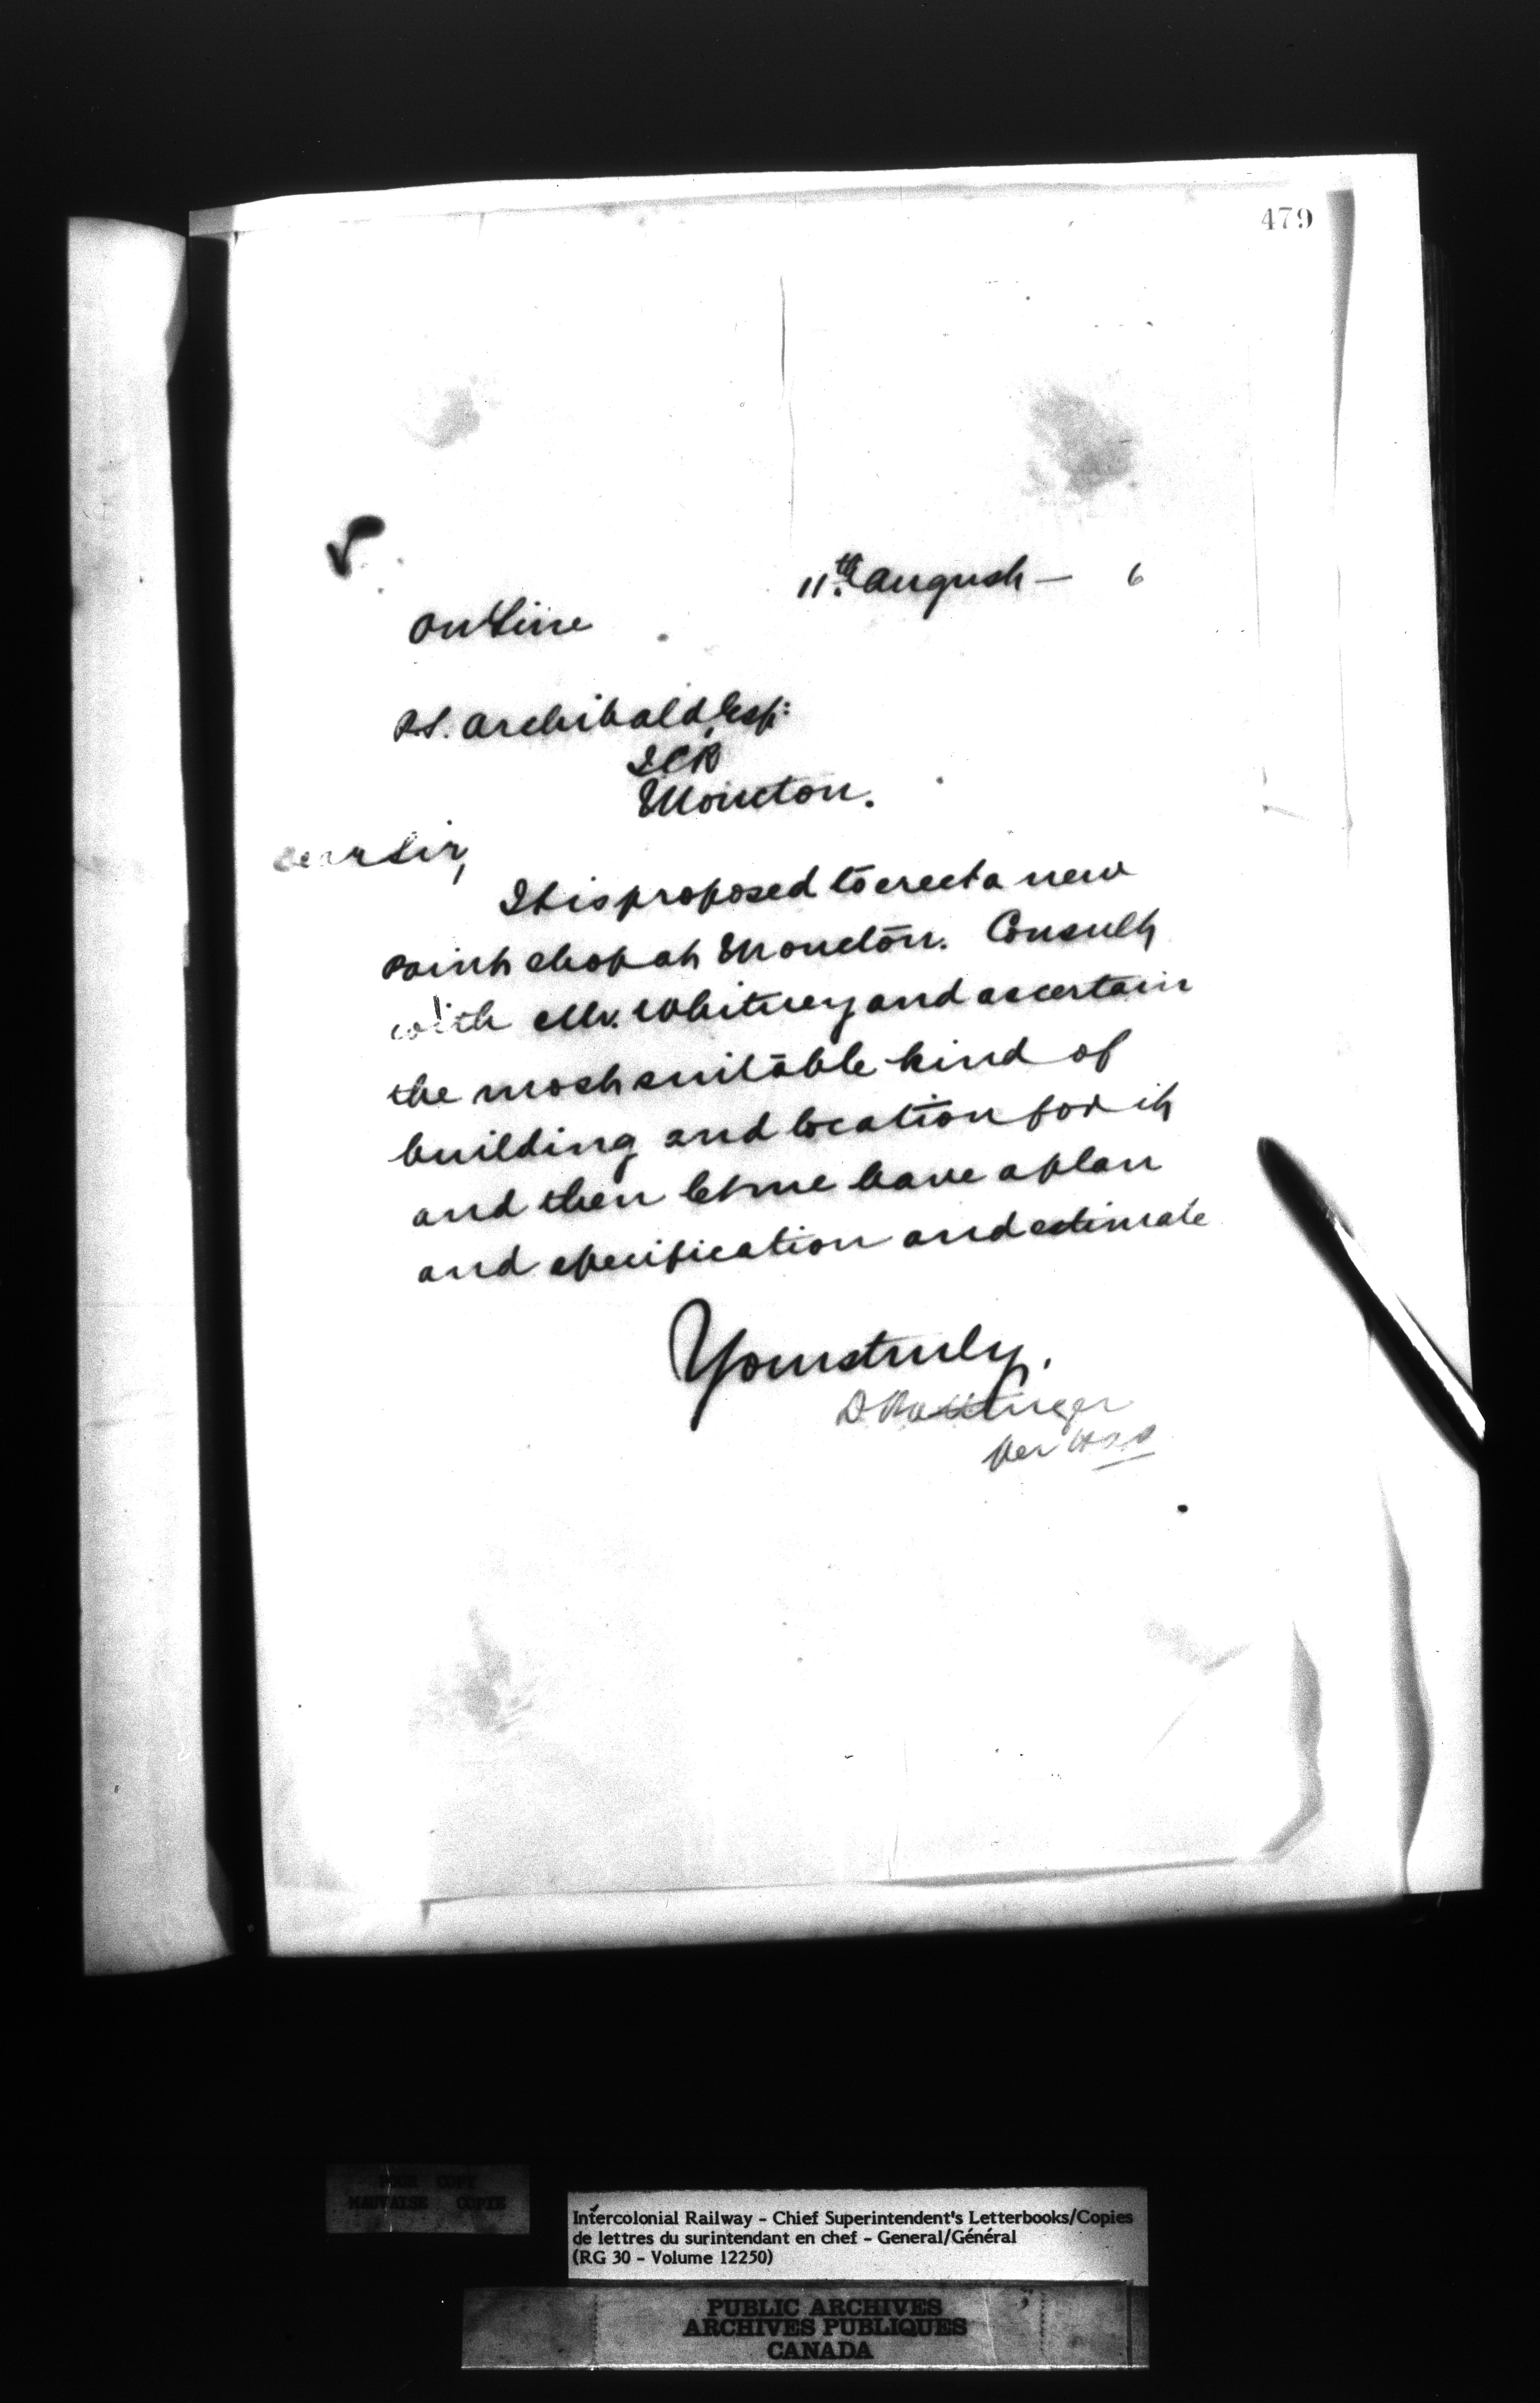 479
11th. August — 6
On Line
P.S. Archibald, Esq:
ICR
Moncton.
Dear Sir,
It is proposed to erect a new
paint shop at Moncton. Consult
with Mr. Whitney and ascertain
the most suitable kind of
building and location for it
and then let me have a plan
and specification and estimate
Yours truly,
D Pottinger
Per
POOR COPY
MAUVAISE COPIE
Intercolonial Railway - Chief Superintendent's Letterbooks/Copies
de lettres du surintendant en chef - General/Général
(RG 30 - Volume 12250)
PUBLIC ARCHIVES
ARCHIVES PUBLIQUES
CANADA